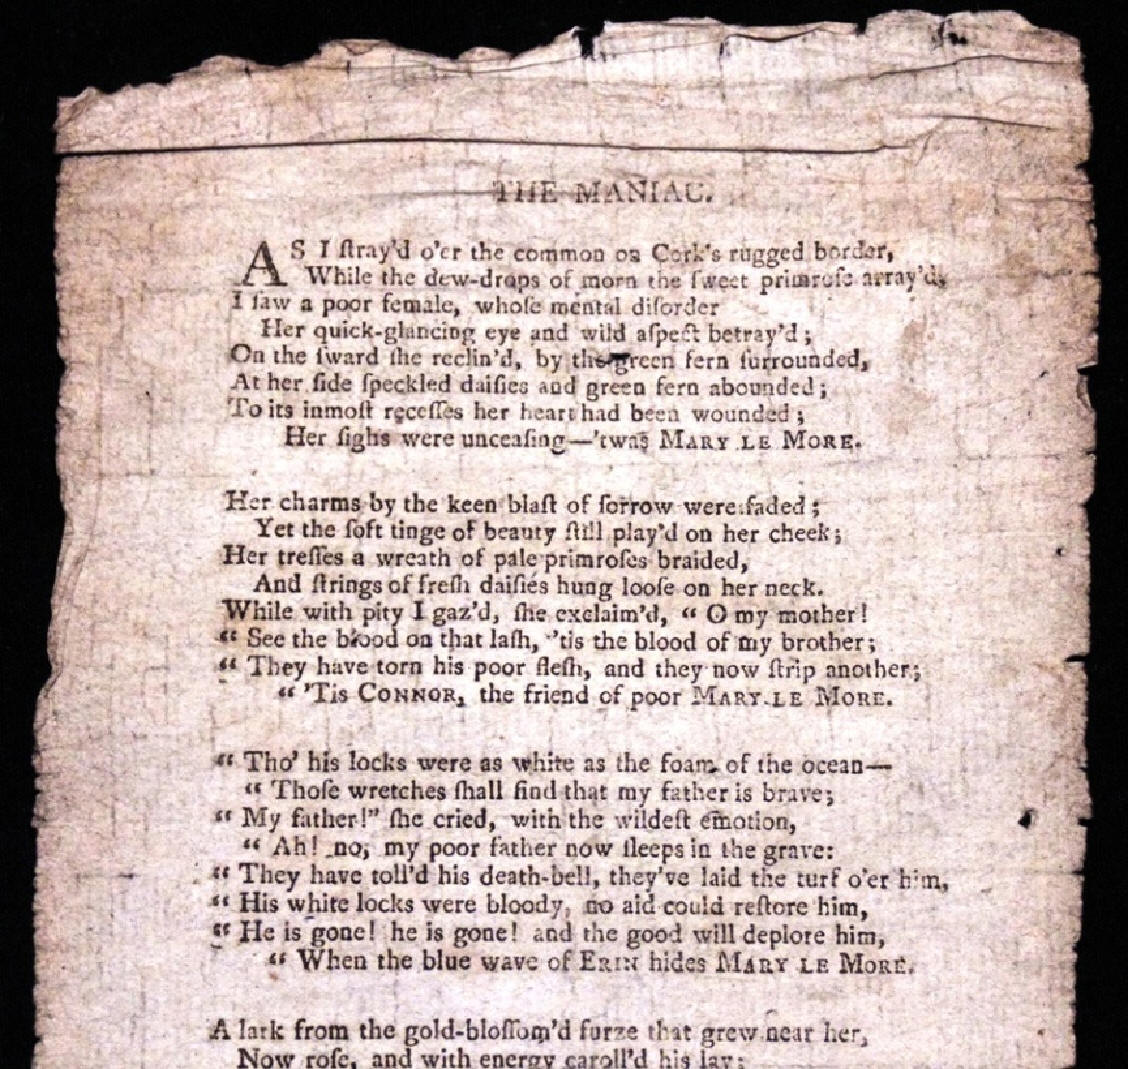 THE MANIAC.
AS I ſtray'd o'er the common on Cork's rugged border,
While the dew-drops of morn the ſweet primroſe array'd,
I ſaw a poor female, whoſe mental diſorder
Her quick-glancing eye and wild aſpect betray'd;
On the ſward ſhe reclin'd, by the green fern ſurrounded,
At her ſide ſpeckled daiſies and green fern abounded;
To its inmoſt receſſes her heart had been wounded;
Her ſighs were unceaſing—'twas MARY LE MORE.
Her charms by the keen blaſt of ſorrow were faded;
Yet the ſoft tinge of beauty ſtill play'd on her cheek;
Her treſſes a wreath of pale primroſes braided,
And ſtrings of freſh daiſies hung looſe on her neck.
While with pity I gaz'd, ſhe exclaim'd, “ O my mother!
“ See the blood on that laſh, 'tis the blood of my brother;
“ They have torn his poor fleſh, and they now ſtrip another;
“ 'Tis CONNOR, the friend of poor MARY LE MORE.
“ Tho' his locks were as white as the foam of the ocean—
“ Thoſe wretches ſhall find that my father is brave;
“ My father!” ſhe cried, with the wildeſt emotion,
“ Ah! no, my poor father now ſleeps in the grave:
“ They have toll'd his death-bell, they've laid the turf o'er him,
“ His white locks were bloody, no aid could reſtore him,
“ He is gone! he is gone! and the good will deplore him,
“ When the blue wave of ERIN hides MARY LE MORE.
A lark from the gold-bloſſom'd furze that grew near her,
Now roſe, and with energy caroll'd his lay;